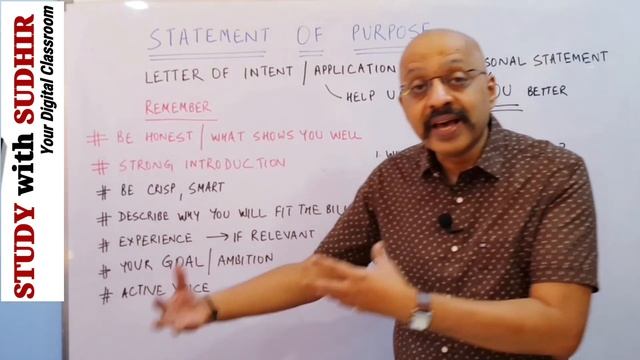 STUDY with SUDHIR
Your Digital Classroom
STATEMENT OF PURPOSE
LETTER OF INTENT / APPLICATION SONAL STATEMENT
HELP U OU BETTER
REMEMBER
# BE HONEST / WHAT SHOWS YOU WELL
# STRONG INTRODUCTION
# BE CRISP, SMART
# DESCRIBE WHY YOU WILL FIT THE BILL
# EXPERIENCE → IF RELEVANT
# YOUR GOAL / AMBITION
# ACTIVE VOICE
1. W ?